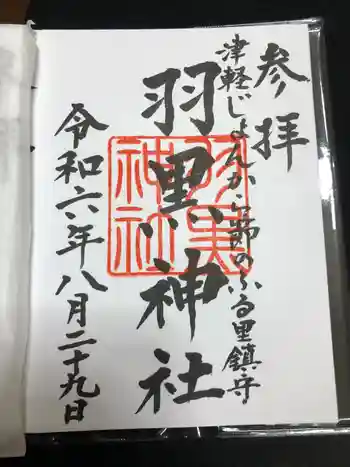 参拝
津軽じょんから節のふる里鎮守
羽黒神社
羽黒神社
令和六年八月二十九日